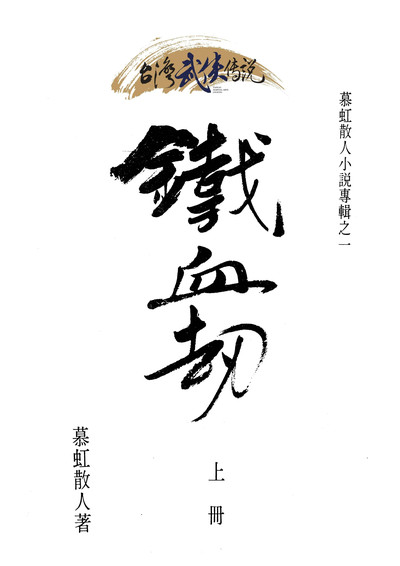 台灣武侠传说
慕虹散人小説專輯之一
鐵血劫
上冊
慕虹散人著